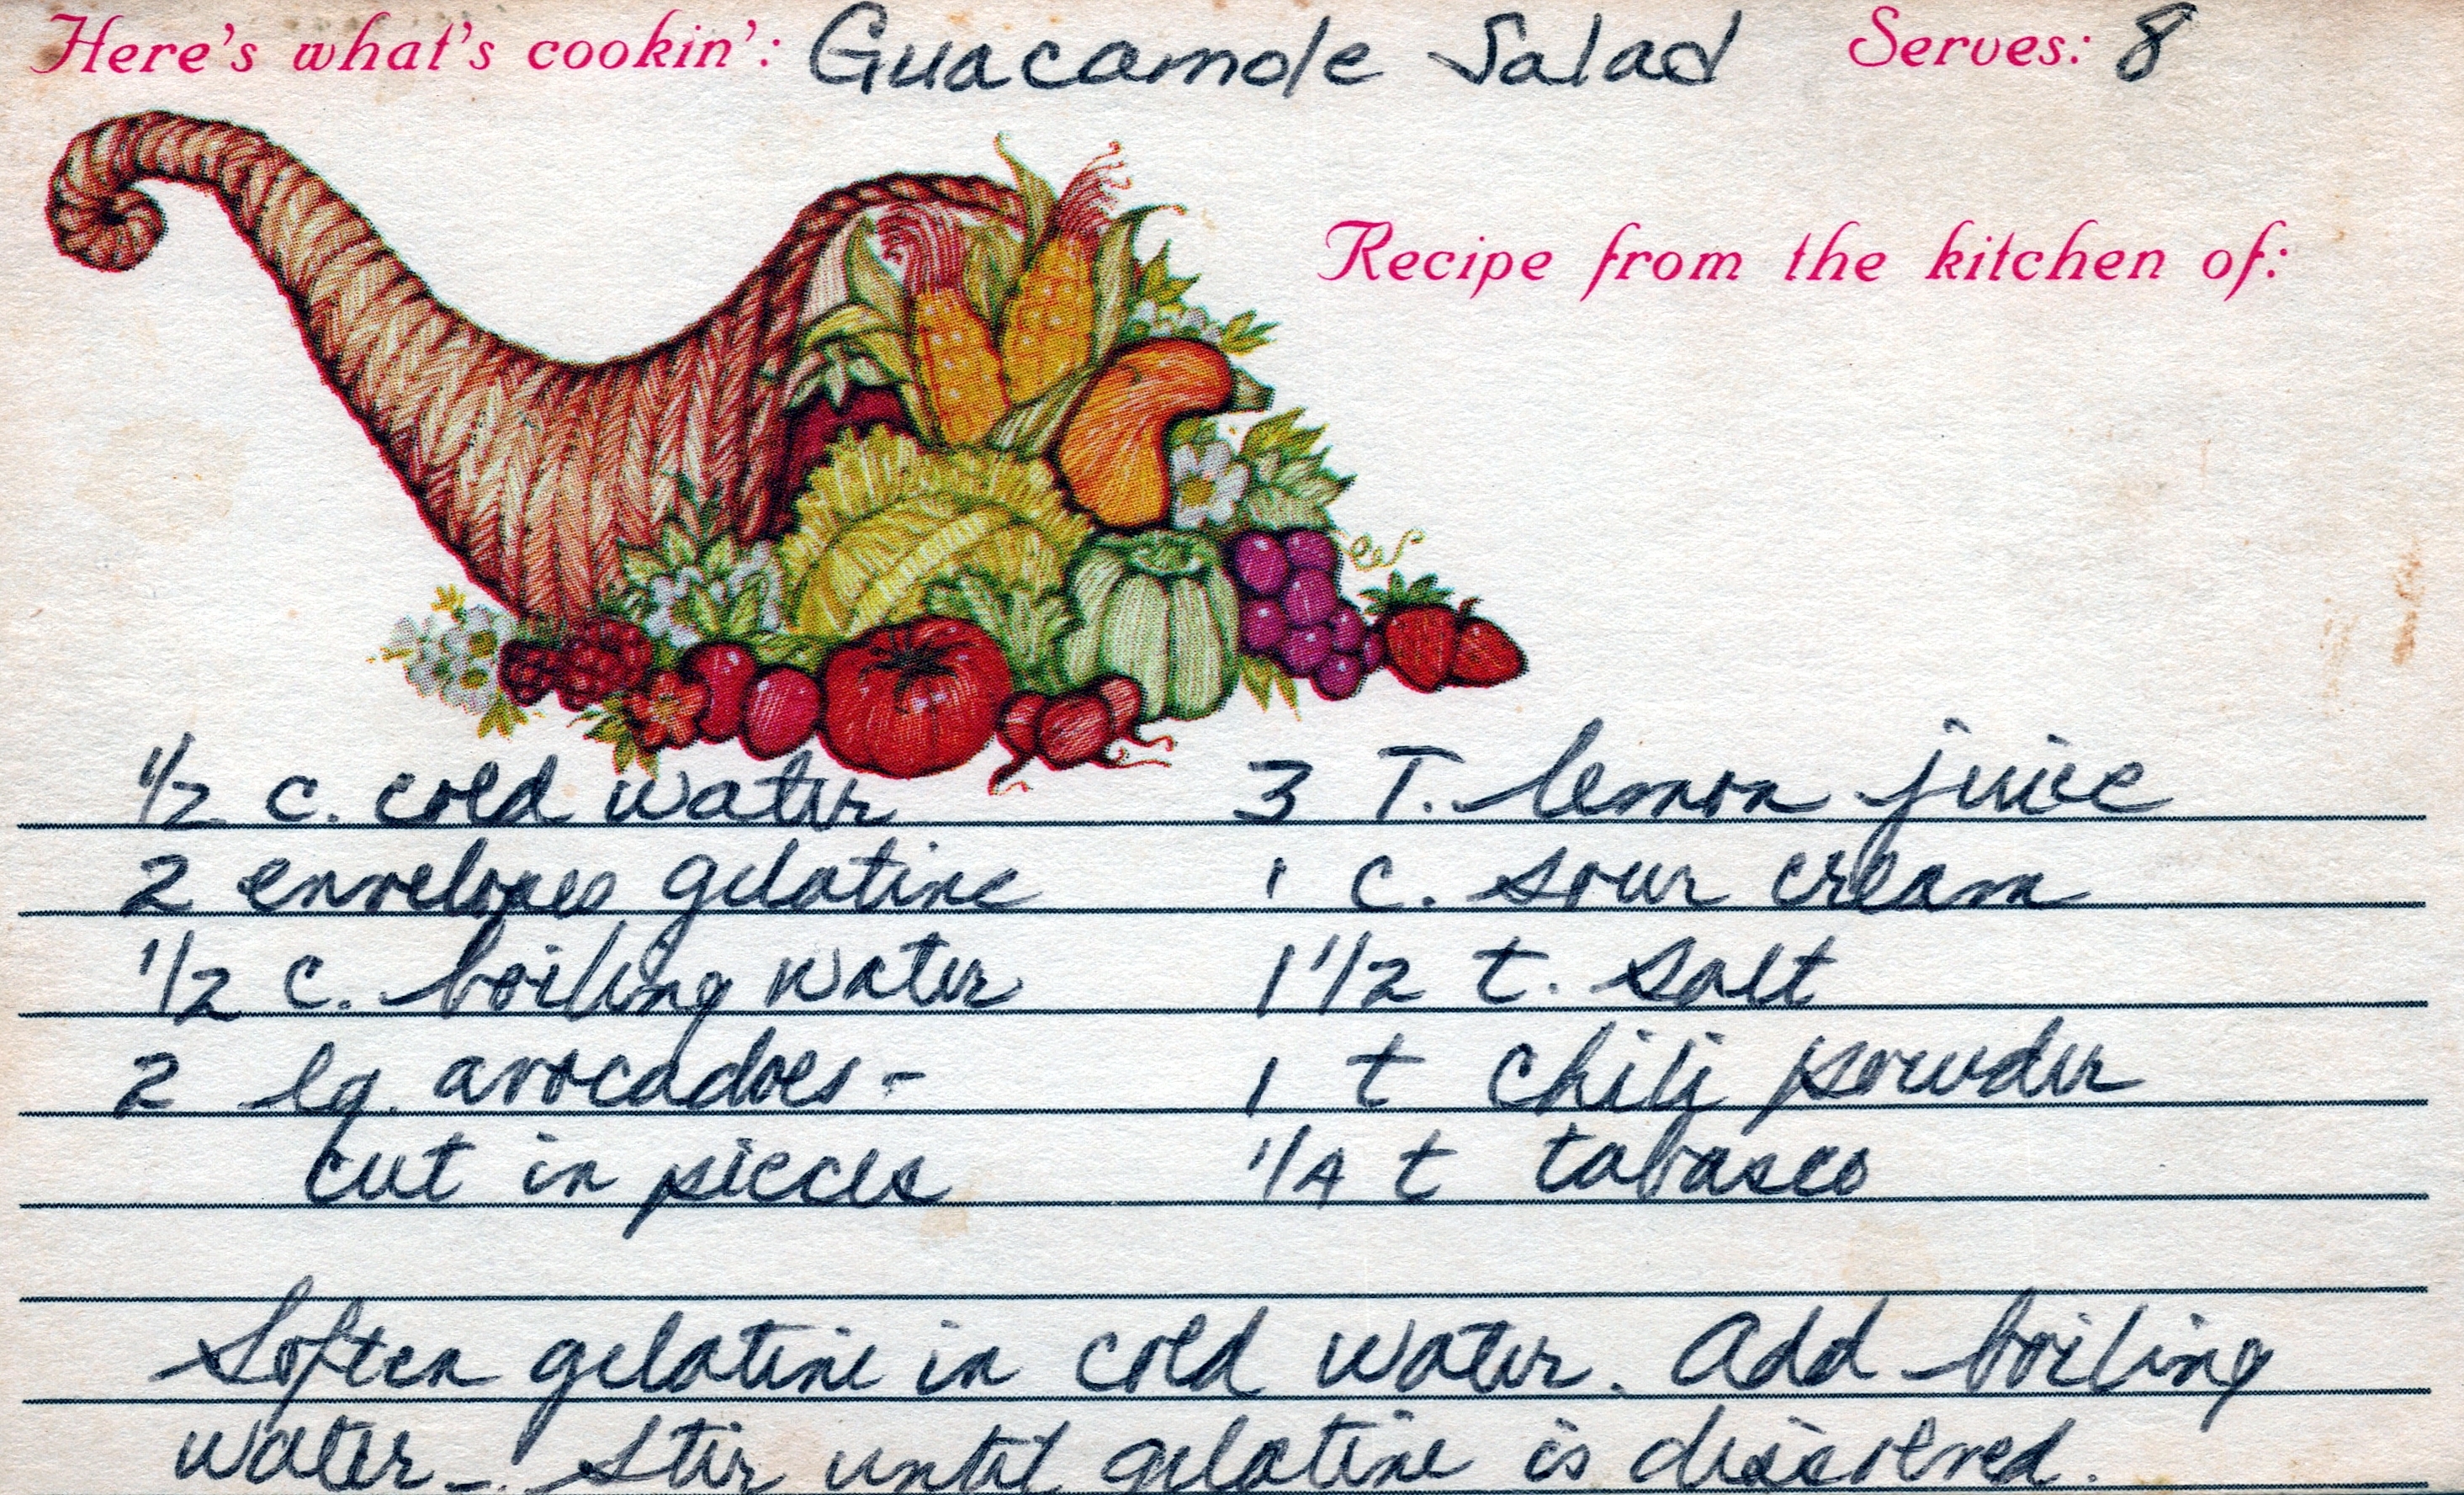 Here's what's cookin': Guacamole Salad Serves: 8
Recipe from the kitchen of:
1/2 c. cold water
2 envelopes gelatine
1/2 c. boiling water
2 lg. avocadoes -
cut in pieces
3 T. lemon juice
1 c. sour cream
1 1/2 t. salt
1 t chili powder
1/4 t tabasco
Soften gelatine in cold water. Add boiling
water -. Stir until gelatine is dissolved.